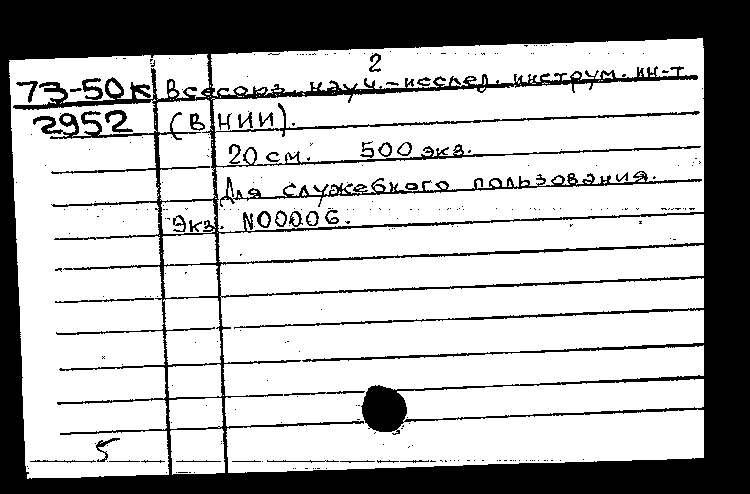 2
73-50к Всесоюз. науч.-исслед. инструм. ин-т
2952 (ВНИИ).
20 см. 500 экз.
Для служебного пользования.
Экз. N00006.
5